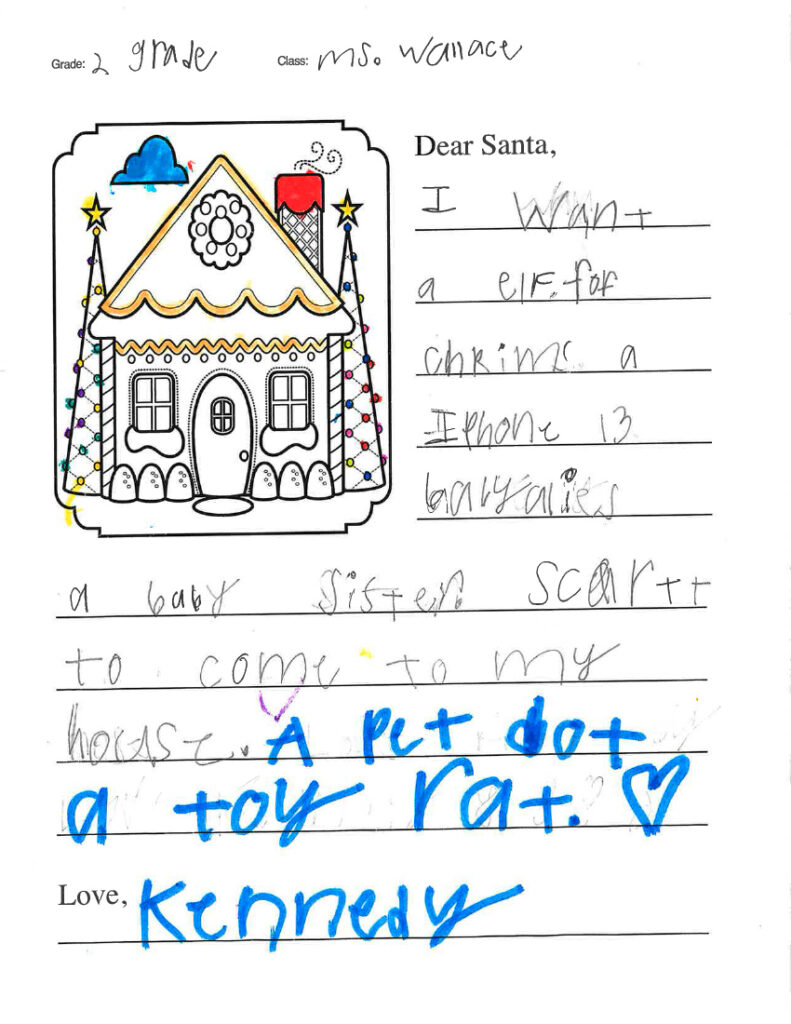 Grade: 2 grade Class: ms. Wallace
Dear Santa,
I Want
a elF. for
chRims a
IPhone 13
a baby sister. Scartt
to come to my
house. A pet dot
a toy rat.
Love, Kennedy